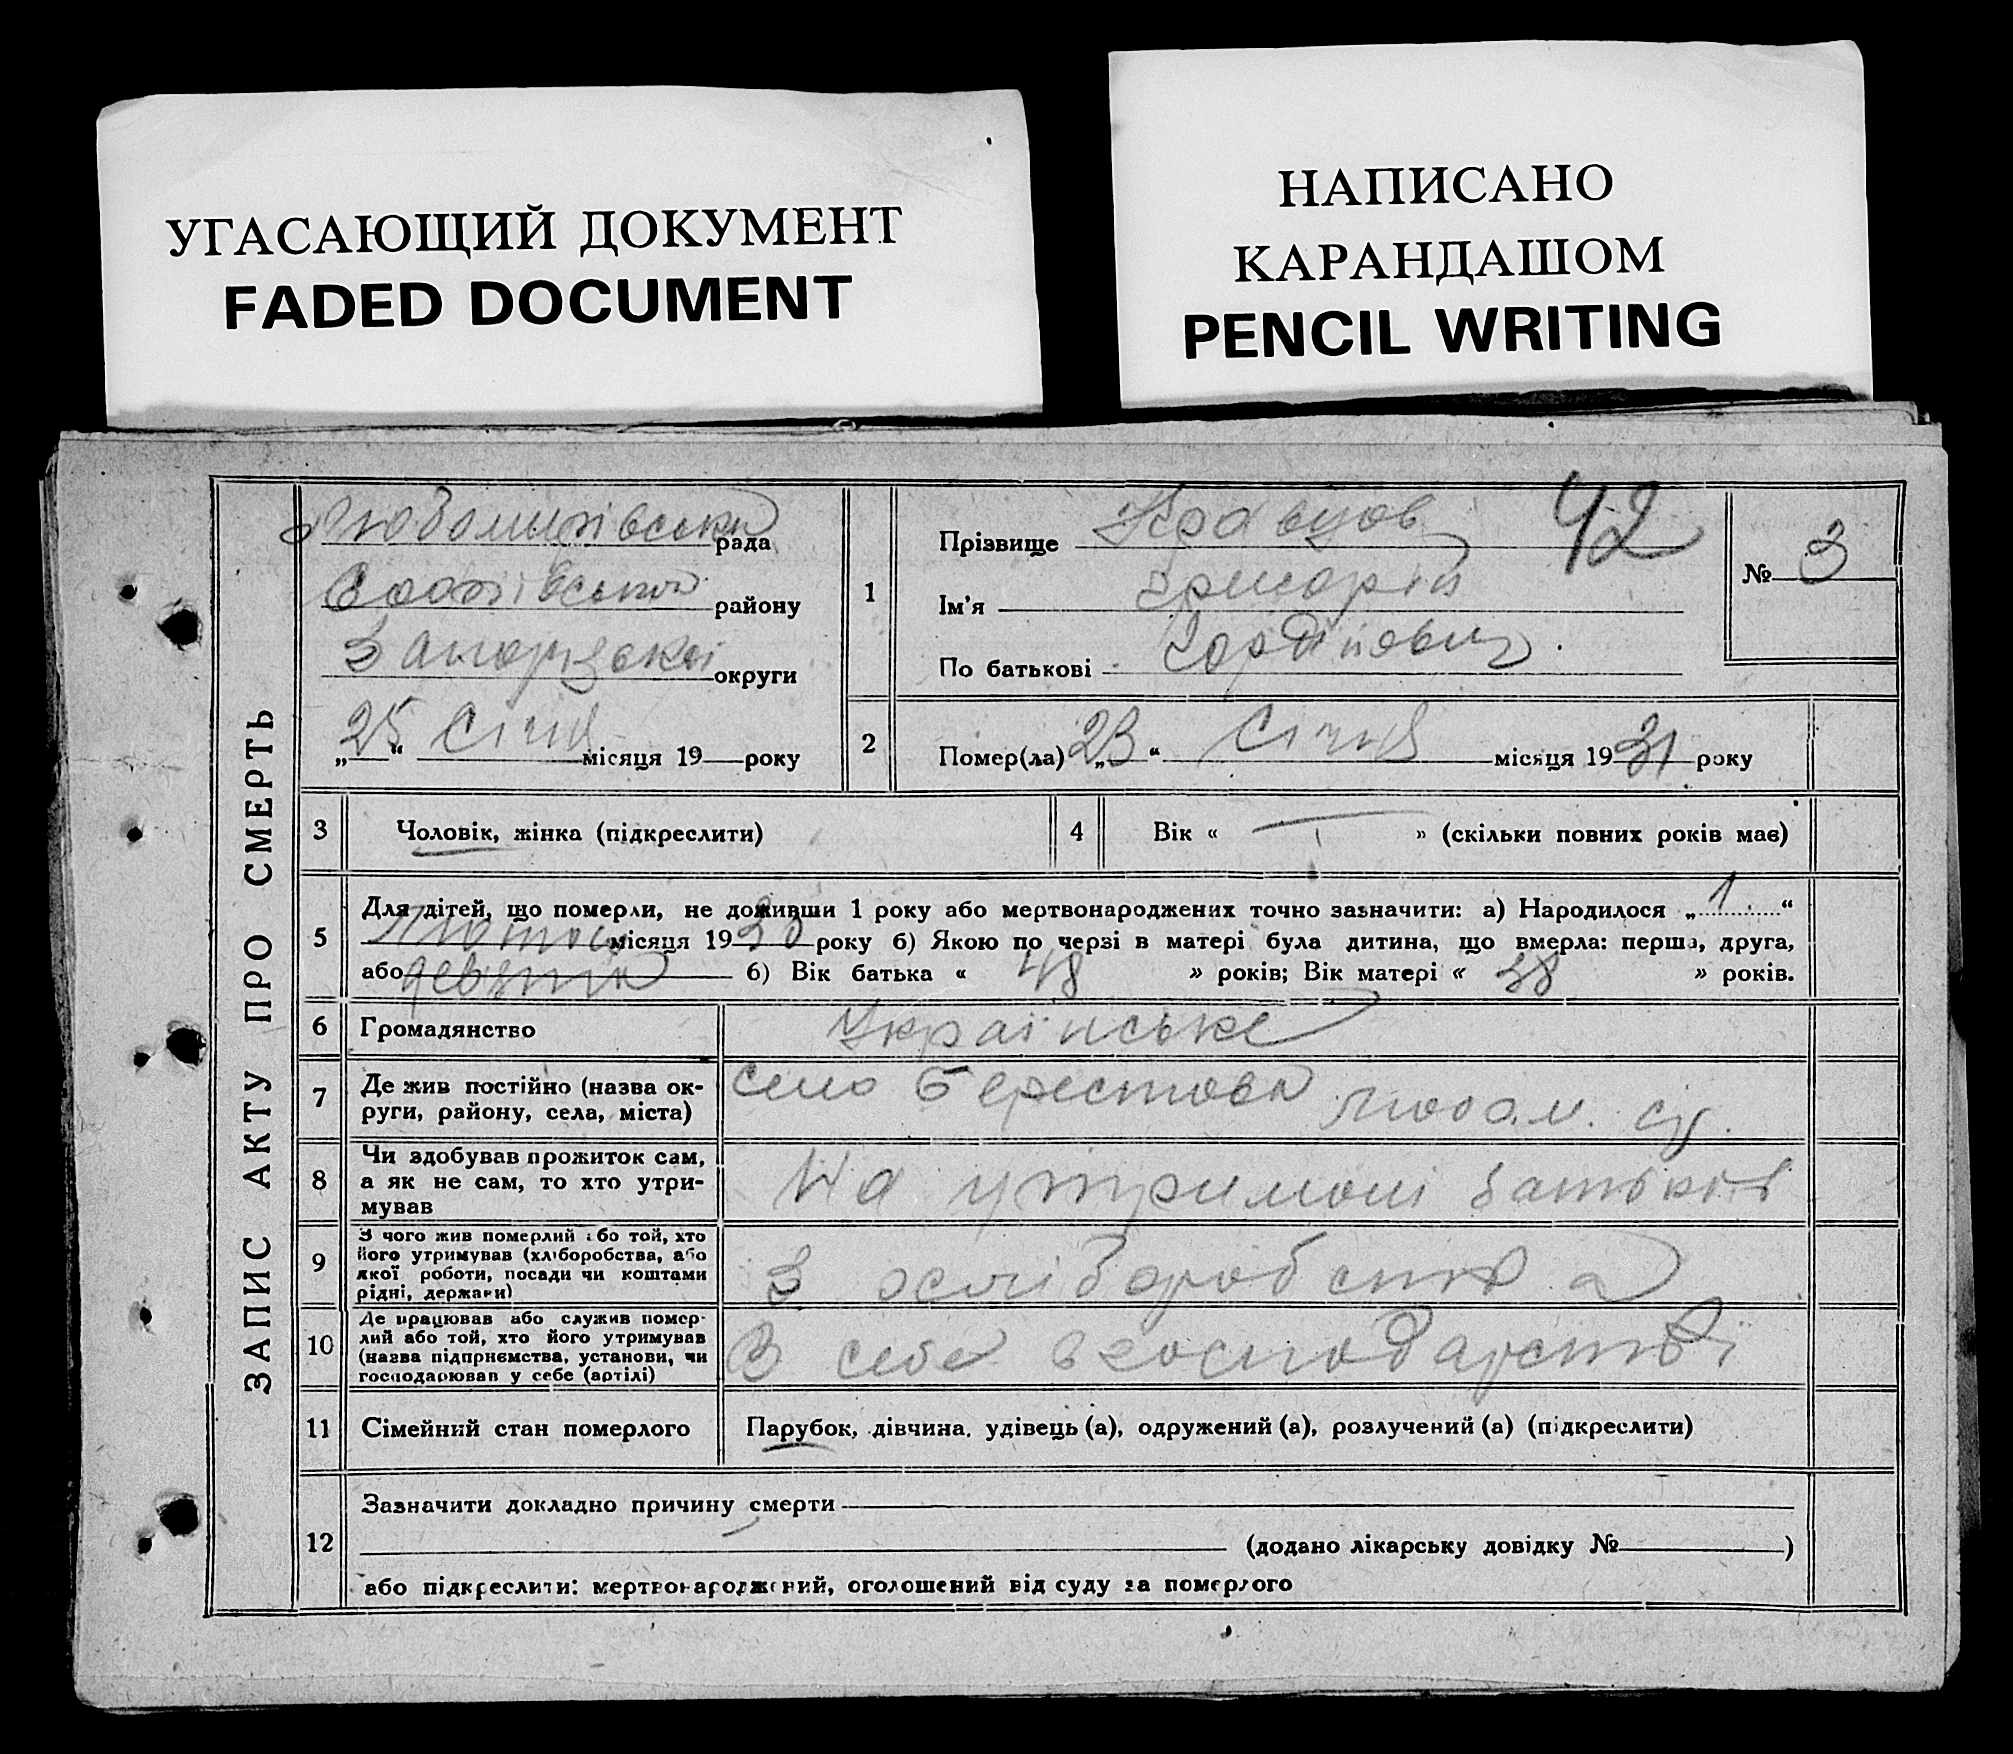 УГАСАЮЩИЙ ДОКУМЕНТ
FADED DOCUMENT
НАПИСАНО
КАРАНДАШОМ
PENCIL WRITING
ЗАПИС АКТУ ПРО СМЕРТЬ
Любомирівська рада
району
Запорізької округи
„25“ Січня місяця 19 року
1
Прізвище Кравцов
42
Ім'я Григорій
По батькові Гордійович
№ 3
2
Помер(ла) „23“ Січня місяця 1931 року
3
Чоловік, жінка (підкреслити)
4
Вік « » (скільки повних років має)
5
Для дітей, що померли, не доживши 1 року або мертвонароджених точно зазначити: а) Народилося „1.“
Лютого місяця 1930 року б) Якою по черзі в матері була дитина, що вмерла: перша, друга,
або девята б) Вік батька « 48 » років; Вік матері « 38 » років.
6
Громадянство
Українське
7
Де жив постійно (назва ок-
руги, району, села, міста)
село Берестова Любом. с/р.
8
Чи здобував прожиток сам,
а як не сам, то хто утри-
мував
На утримані батьків
9
З чого жив померлий або той, хто
його утримував (хліборобства, або
якої роботи, посади чи коштами
рідні, держави)
З хліборобства
10
Де працював або служив помер-
лий або той, хто його утримував
(назва підприємства, установи, чи
господарював у себе (артілі)
В себе в господарстві
11
Сімейний стан померлого
Парубок, дівчина, удівець (а), одружений (а), розлучений (а) (підкреслити)
12
Зазначити докладно причину смерти
(додано лікарську довідку № )
або підкреслити: мертвонароджений, оголошений від суду за померлого